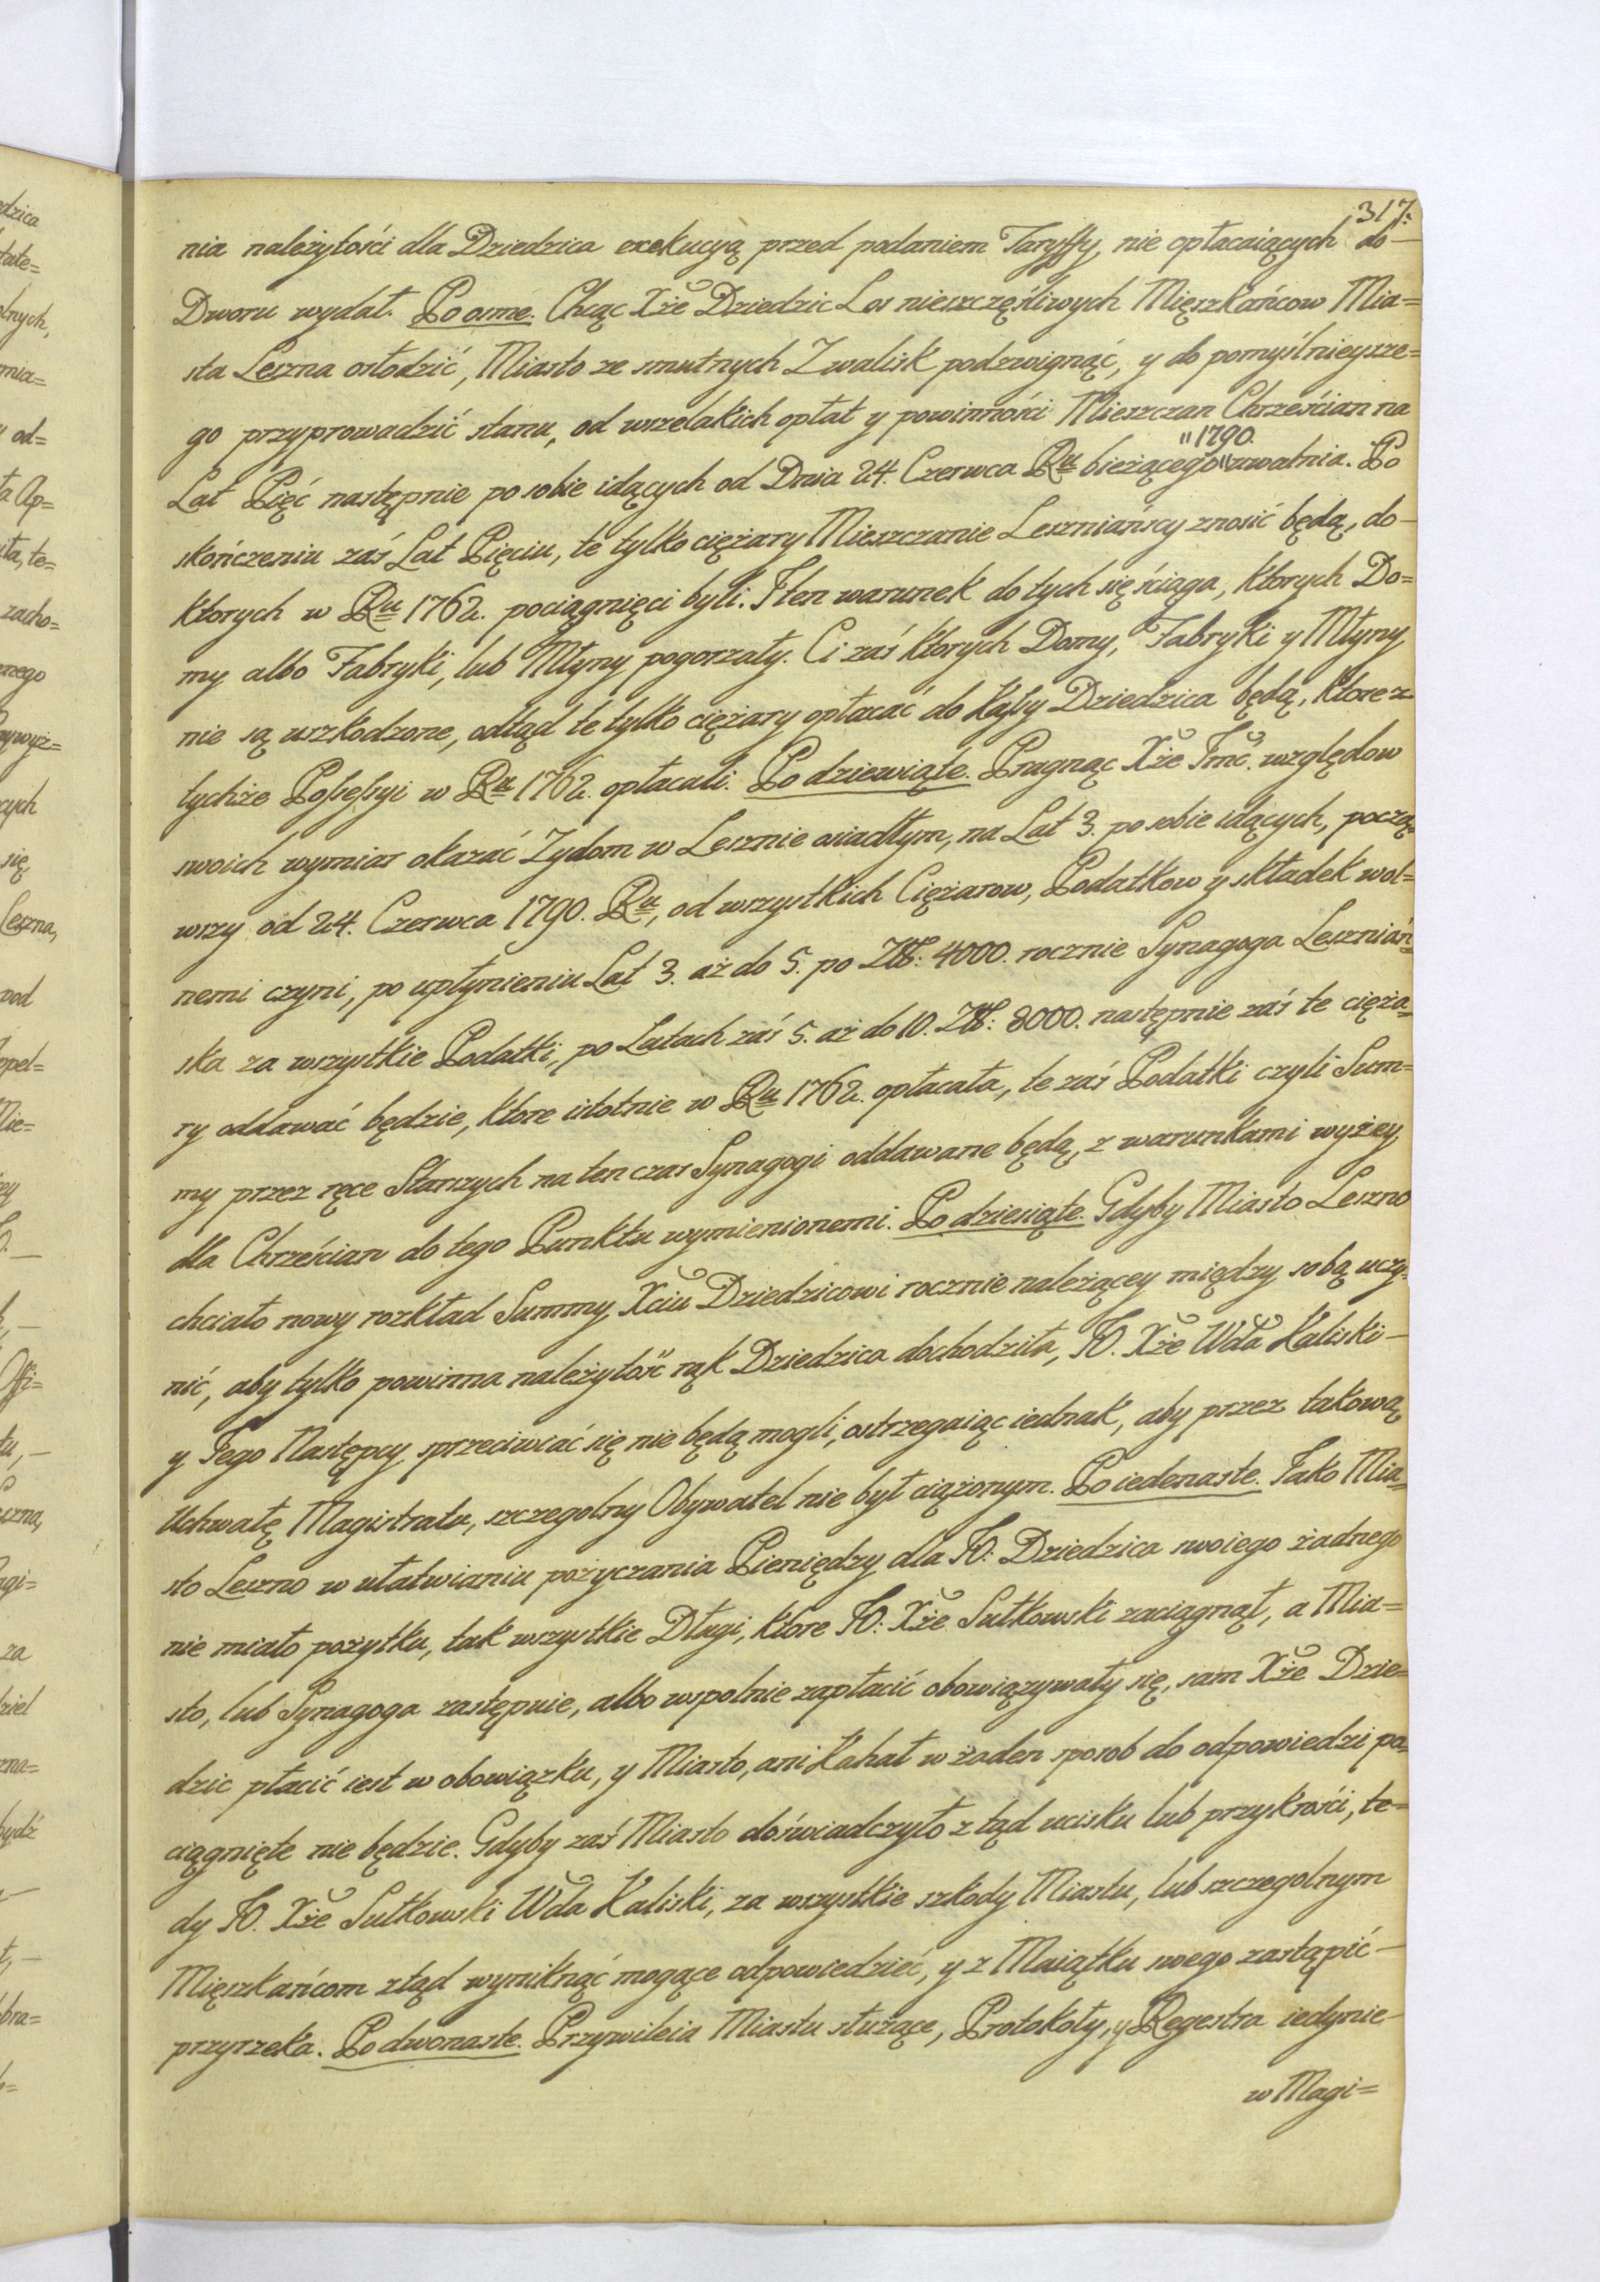 317.
nia należytości dla Dziedzica exekucyą przed podaniem Taryffy, nie opłacaiących do
Dworu wydał. Po osme. Chcąc Xże Dziedzic Los nieszczęśliwych Mięszkańcow Mia=
sta Leszna osłodzić, Miasto ze smutnych Zwalisk podzwignąć, y do pomyślnieysze=
go przyprowadzić stanu, od wszelakich opłat y powinności Mieszczan Chrześcian na
"1790.
Lat Pięć następnie po sobie idących od Dnia 24. Czerwca Ru bieżącego" uwalnia. Po
skończeniu zaś Lat Pięciu, te tylko ciężary Mieszczanie Leszniańscy znosić będą, do
ktorych w Ru 1762. pociągnięci byli. I ten warunek do tych się ściąga, ktorych Do=
my albo Fabryki, lub Młyny pogorzały. Ci zaś ktorych Domy, Fabryki y Młyny
nie są uszkodzone, odtąd te tylko ciężary opłacać do Kassy Dziedzica będą, ktore z
tychże Possessyi w Ru 1762. opłacali. Po dziewiąte. Pragnąc Xże Jmć. względow
swoich wymiar okazać Żydom w Lesznie osiadłym, na Lat 3. po sobie idących, począ=
wszy od 24. Czerwca 1790. Ru, od wszystkich Ciężarow, Podatkow y składek wol=
nemi czyni, po upłynieniu Lat 3. aż do 5. po Złł: 4000. rocznie Synagoga Leszniań=
ska za wszystkie Podatki, po Latach zaś 5. aż do 10. Złł: 8000. następnie zaś te cięża=
ry oddawać będzie, ktore istotnie w Ru 1762. opłacała, te zaś Podatki czyli Sum=
my przez ręce Starszych na ten czas Synagogi oddawane będą, z warunkami wyżey
dla Chrześcian do tego Punktu wymienionemi. Po dziesiąte. Gdyby Miasto Leszno
chciało nowy rozkład Summy Xciu Dziedzicowi rocznie należącey między sobą uczy=
nić, aby tylko powinna należytość rąk Dziedzica dochodziła, JO. Xże Wda Kaliski
y Jego Następcy sprzeciwiać się nie będą mogli, ostrzegaiąc iednak, aby przez takową
Uchwałę Magistratu, szczegolny Obywatel nie był ciążonym. Po iedenaste. Jako Mia=
sto Leszno w ułatwianiu pożyczania Pieniędzy dla JO: Dziedzica swoiego żadnego
nie miało pożytku, tak wszystkie Długi, ktore JO: Xże Sułkowski zaciągnął, a Mia=
sto, lub Synagoga zastępnie, albo wspolnie zapłacić obowiązywały się, sam Xże Dzie=
dzic płacić iest w obowiązku, y Miasto, ani Kahał w żaden sposob do odpowiedzi po=
ciągnięte nie będzie. Gdyby zaś Miasto doświadczyło z tąd ucisku lub przykrości, te=
dy JO. Xże Sułkowski Wda Kaliski, za wszystkie szkody Miastu, lub szczegolnym
Mięszkańcom ztąd wyniknąć mogące odpowiedzieć, y z Maiątku swego zastąpić
przyrzeka. Po dwonaste. Przywileia Miastu służące, Protokoły, y Regestra iedynie
w Magi=